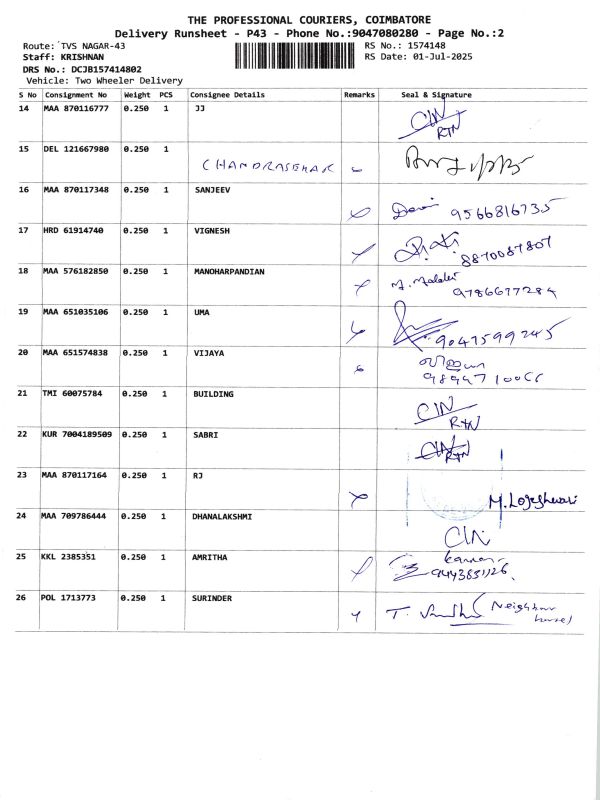 THE PROFESSIONAL COURIERS, COIMBATORE
Delivery Runsheet - P43 - Phone No.:9047080280 - Page No.:2
Route: TVS NAGAR-43 RS No.: 1574148
Staff: KRISHNAN RS Date: 01-Jul-2025
DRS No.: DCJB157414802
Vehicle: Two Wheeler Delivery
S No Consignment No Weight PCS Consignee Details Remarks Seal & Signature
14 MAA 870116777 0.250 1 JJ CIN
RTN
15 DEL 121667980 0.250 1
CHANDRASEHAR
16 MAA 870117348 0.250 1 SANJEEV
9566816735
17 HRD 61914740 0.250 1 VIGNESH
8870087807
18 MAA 576182850 0.250 1 MANOHARPANDIAN
9786677284
19 MAA 651035106 0.250 1 UMA
9047599245
20 MAA 651574838 0.250 1 VIJAYA
21 TMI 60075784 0.250 1 BUILDING CIN
RTN
22 KUR 7004189509 0.250 1 SABRI CIN
RTN
23 MAA 870117164 0.250 1 RJ
M.Logeshwari
24 MAA 709786444 0.250 1 DHANALAKSHMI
CIN
25 KKL 2385351 0.250 1 AMRITHA
26 POL 1713773 0.250 1 SURINDER
Neighbour